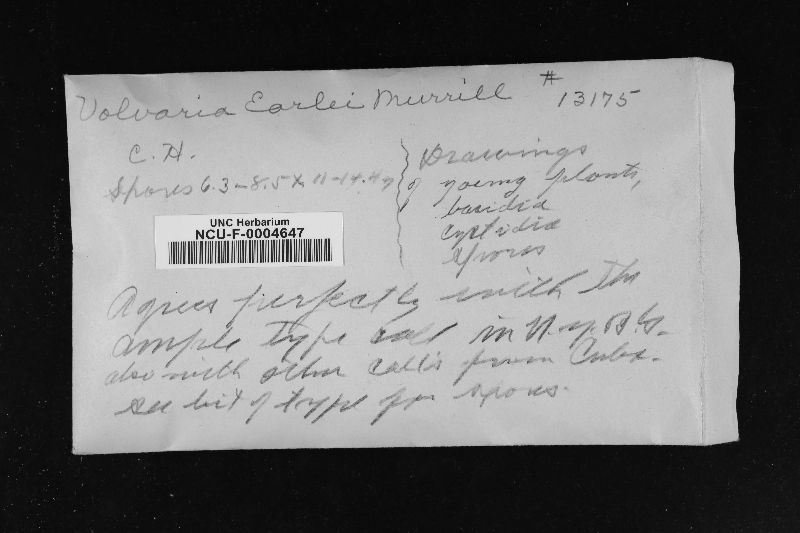 Volvaria Earlei Murrill # 13175
C. H.
Spores 6.3-8.5 x 11-14.4 µ
Drawings
of young plants,
basidia
cystidia
spores
UNC Herbarium
NCU-F-0004647
Agrees perfectly with the
ample type coll in N.Y.B.G.
also with other coll's from Cuba.
see bit of type for spores.